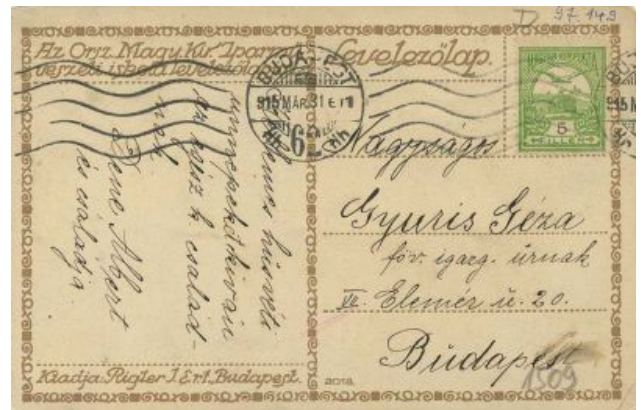 D 97.149
Az Orsz. Magy. Kir. Iparmű
vészeti iskola levelezőlap
Levelezőlap.
BUDAPEST
915 MÁR. 31 E 11
62
5
FILLÉR
Kellemes húsvéti
ünnepeket kiván
az egész k. család-
nak
Dene Albert
és családja
Nagyságos
Gyuris Géza
föv. igazg. úrnak
VII. Elemér u. 20.
Budapest
1509
Kiadja Rigler J. E. r.t. Budapest.